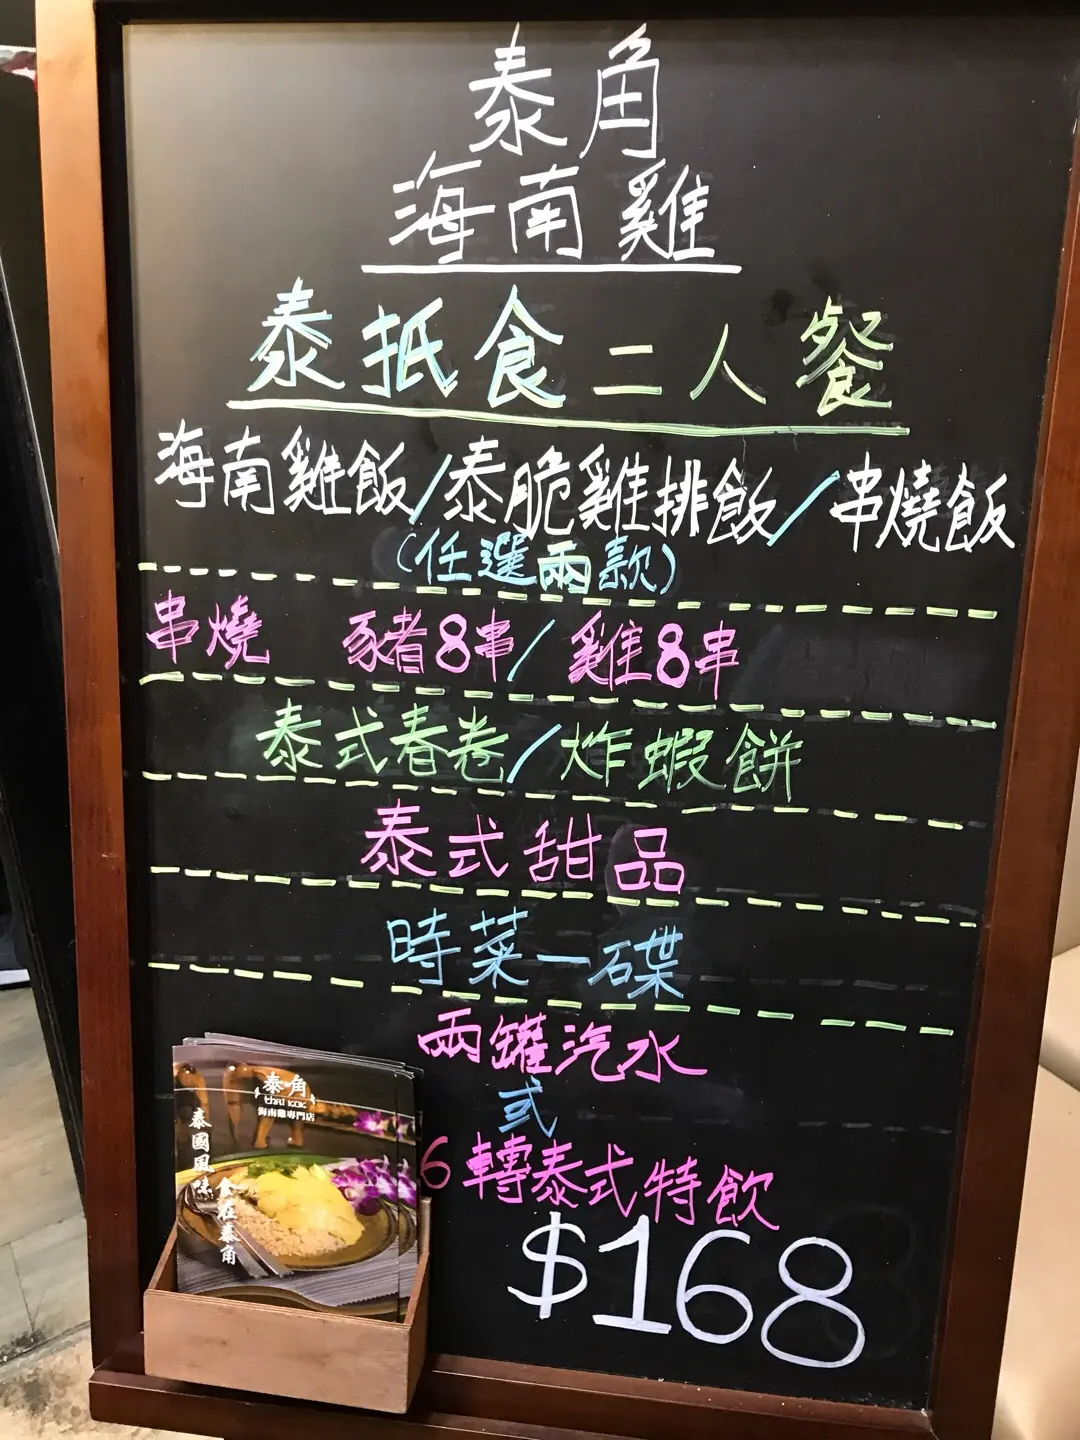 泰角
海南雞
泰抵食二人餐
海南雞飯/泰脆雞排飯/串燒飯
(任選兩款)
串燒 豬8串/雞8串
泰式春卷/炸蝦餅
泰式甜品
時菜一碟
兩罐汽水
或
6轉泰式特飲
$168
泰角
thai kok
海南雞專門店
泰國風味
食在泰角